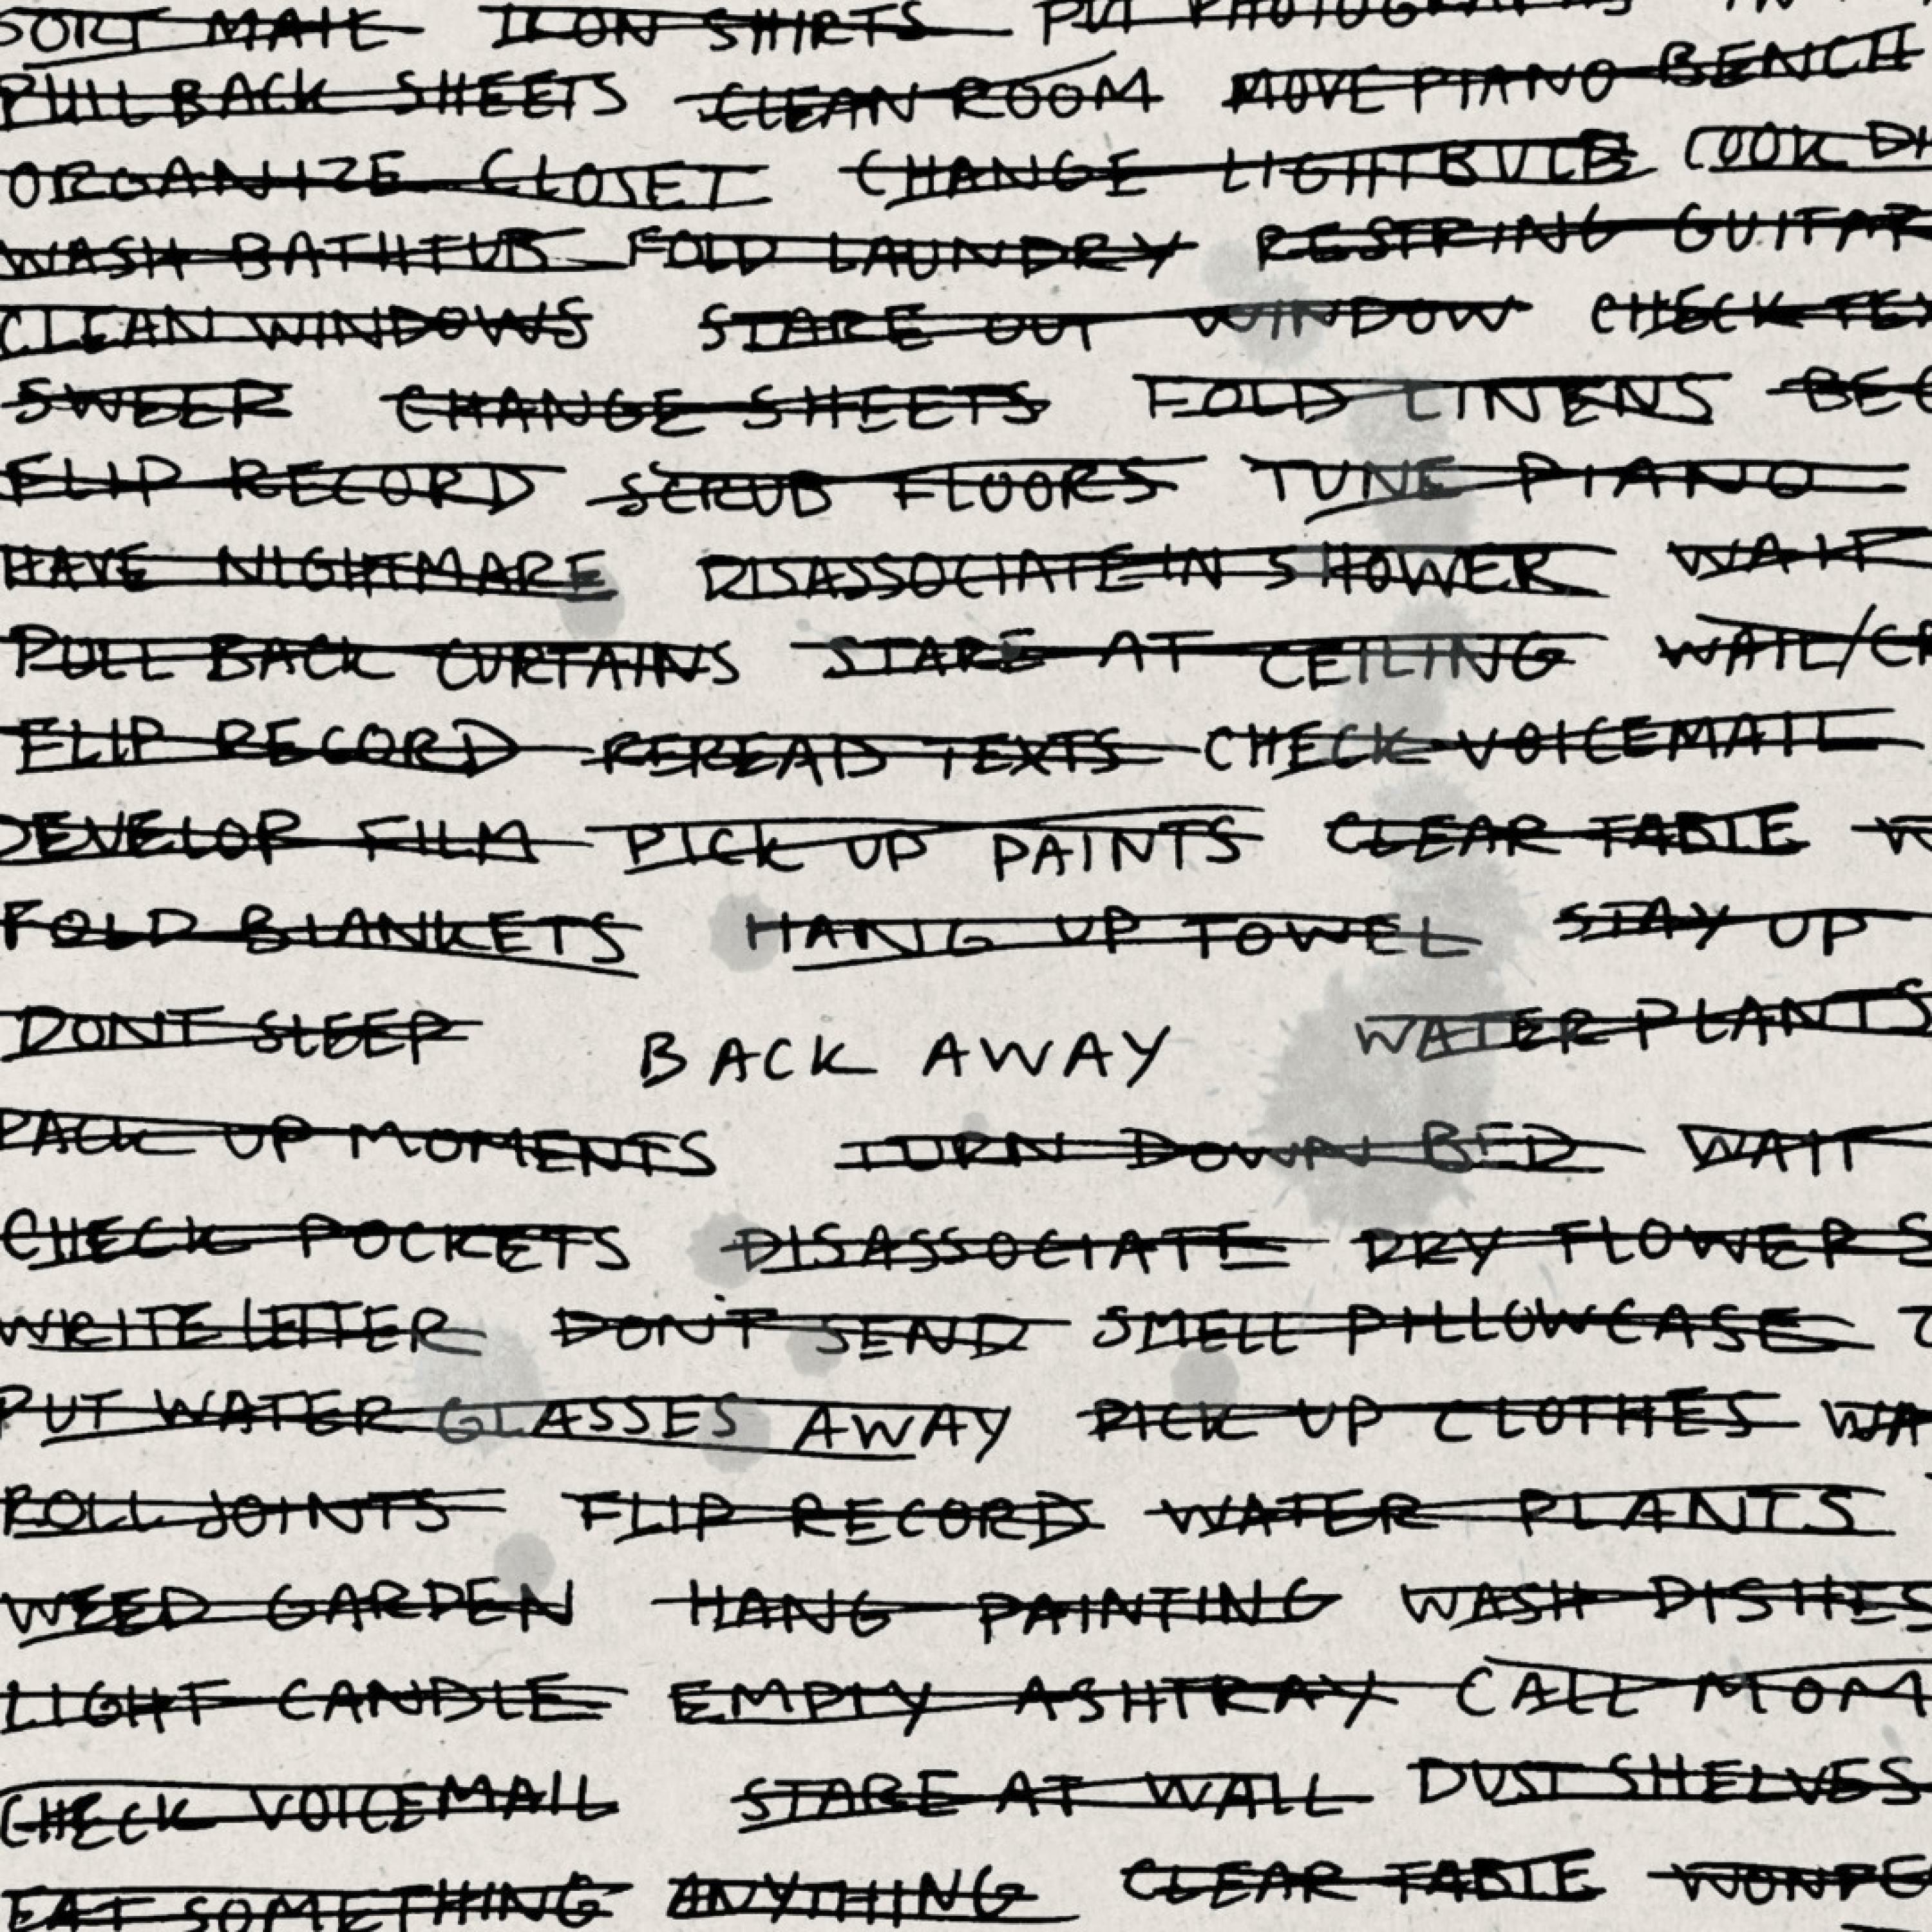 SORT MAIL IRON SHIRTS PUT PHOTOGRAPHS IN
PULL BACK SHEETS CLEAN ROOM MOVE PIANO BENCH
ORGANIZE CLOSET CHANGE LIGHTBULB COOK DI
WASH BATHTUB FOLD LAUNDRY RESTRING GUITAR
CLEAN WINDOWS STARE OUT WINDOW CHECK TEX
SWEEP CHANGE SHEETS FOLD LINENS BEG
FLIP RECORD SCRUB FLOORS TUNE PIANO
HAVE NIGHTMARE DISASSOCIATE IN SHOWER WAIT
PULL BACK CURTAINS STARE AT CEILING WAIL/CR
FLIP RECORD REREAD TEXTS CHECK VOICEMAIL
DEVELOP FILM PICK UP PAINTS CLEAR TABLE
FOLD BLANKETS HANG UP TOWEL STAY UP
DONT SLEEP BACK AWAY WATER PLANTS
PACK UP MOMENTS TURN DOWN BED WAIT
CHECK POCKETS DISASSOCIATE DRY FLOWERS
WRITE LETTER DON'T SEND SMELL PILLOWCASE
PUT WATER GLASSES AWAY PICK UP CLOTHES WA
ROLL JOINTS FLIP RECORD WATER PLANTS
WEED GARDEN HANG PAINTING WASH DISHES
LIGHT CANDLE EMPTY ASHTRAY CALL MOM
CHECK VOICEMAIL STARE AT WALL DUST SHELVES
EAT SOMETHING ANYTHING CLEAR TABLE WONDE